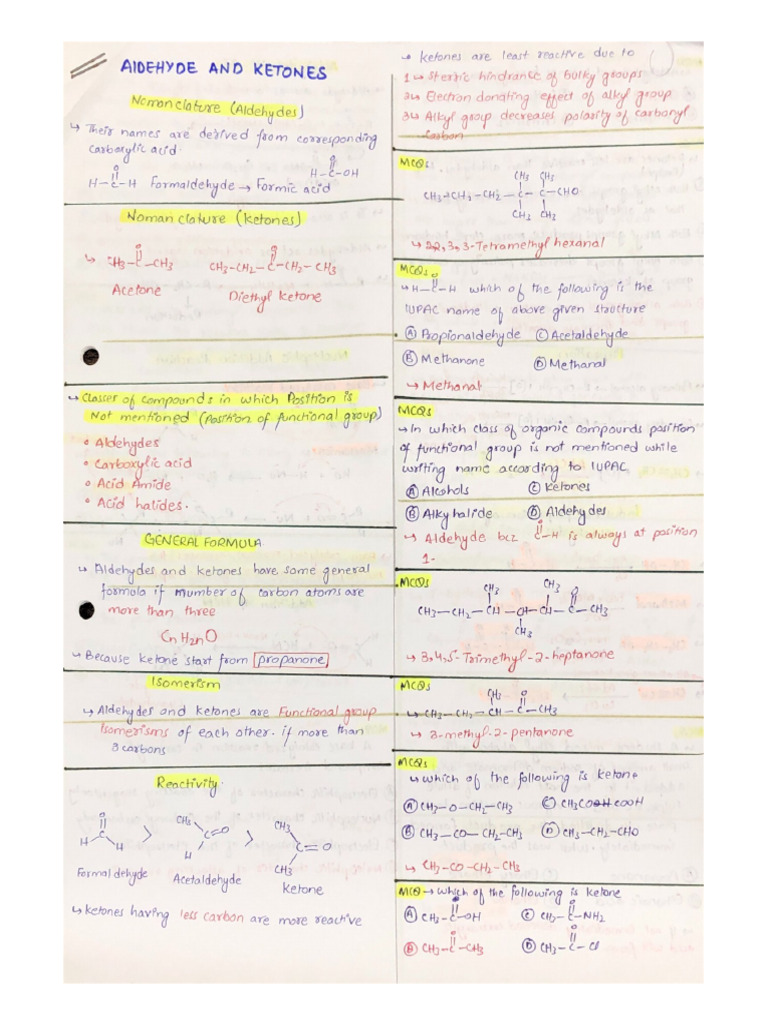 AlDEHYDE AND KETONES
Nomanclature (Aldehydes)
↳ Their names are derived from corresponding
carboxylic acid.
O
H-C-H Formaldehyde → Formic acid
O
H-C-OH
Nomanclature (ketones)
O
↳ CH3-C-CH3
O
CH3-CH2-C-CH2-CH3
Acetone
Diethyl ketone
↳ Classes of compounds in which Position is
Not mentioned (Position of functional group)
• Aldehydes
• Carboxylic acid
• Acid Amide
• Acid halides.
GENERAL FORMULA
↳ Aldehydes and ketones have same general
formula if number of carbon atoms are
more than three
CnH2nO
↳ Because ketone start from propanone
Isomerism
↳ Aldehydes and ketones are Functional group
Isomerisms of each other. if more than
3 carbons
Reactivity.
O
C
H H
>
CH3
C=O
H
>
CH3
C=O
CH3
Formaldehyde
Acetaldehyde
Ketone
↳ ketones having less carbon are more reactive
↳ ketones are least reactive due to
1 ↳ Sterric hindrance of bulky groups
2 ↳ Electron donating effect of alkyl group
3 ↳ Alkyl group decreases polarity of carbonyl
carbon
MCQs
CH3 CH3
CH3-CH2-CH2-C-C-CHO
CH3 CH3
↳ 2,2,3,3-Tetramethyl hexanal
MCQs
O
↳ H-C-H which of the following is the
IUPAC name of above given structure
Ⓐ Propionaldehyde Ⓒ Acetaldehyde
Ⓑ Methanone Ⓓ Methanal
↳ Methanal
MCQs
↳ In which class of organic compounds position
of functional group is not mentioned while
writing name according to IUPAC
Ⓐ Alcohols Ⓒ ketones
Ⓑ Alkyhalide Ⓓ Aldehydes
O
↳ Aldehyde bcz C-H is always at position
1-
MCQs
CH3 CH3 O
CH3-CH2-CH-CH-CH-C-CH3
CH3
↳ 3,4,5-Trimethyl-2-heptanone
MCQs
CH3 O
↳ CH3-CH2-CH-C-CH3
↳ 3-methyl-2-pentanone
MCQs
↳ which of the following is ketone
Ⓐ CH3-O-CH2-CH3 Ⓒ CH3COOH COOH
Ⓑ CH3-CO-CH2-CH3 Ⓓ CH3-CH2-CHO
↳ CH3-CO-CH2-CH3
MCQ → which of the following is ketone
O O
Ⓐ CH3-C-OH Ⓒ CH3-C-NH2
O O
Ⓑ CH3-C-CH3 Ⓓ CH3-C-Cl